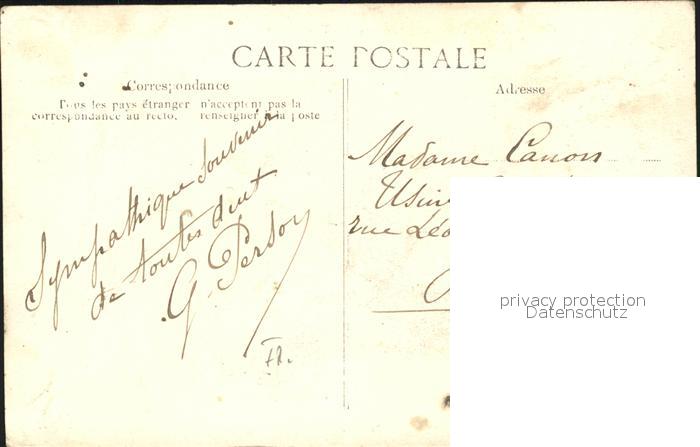 CARTE POSTALE
Correspondance
Tous les pays étranger n'acceptent pas la
correspondance au recto, renseigner à la poste
Adresse
Sympathique souvenir
de toutes deux
G. Perdon
Fr.
Madame Canon
Usin
rue Léo
privacy protection
Datenschutz